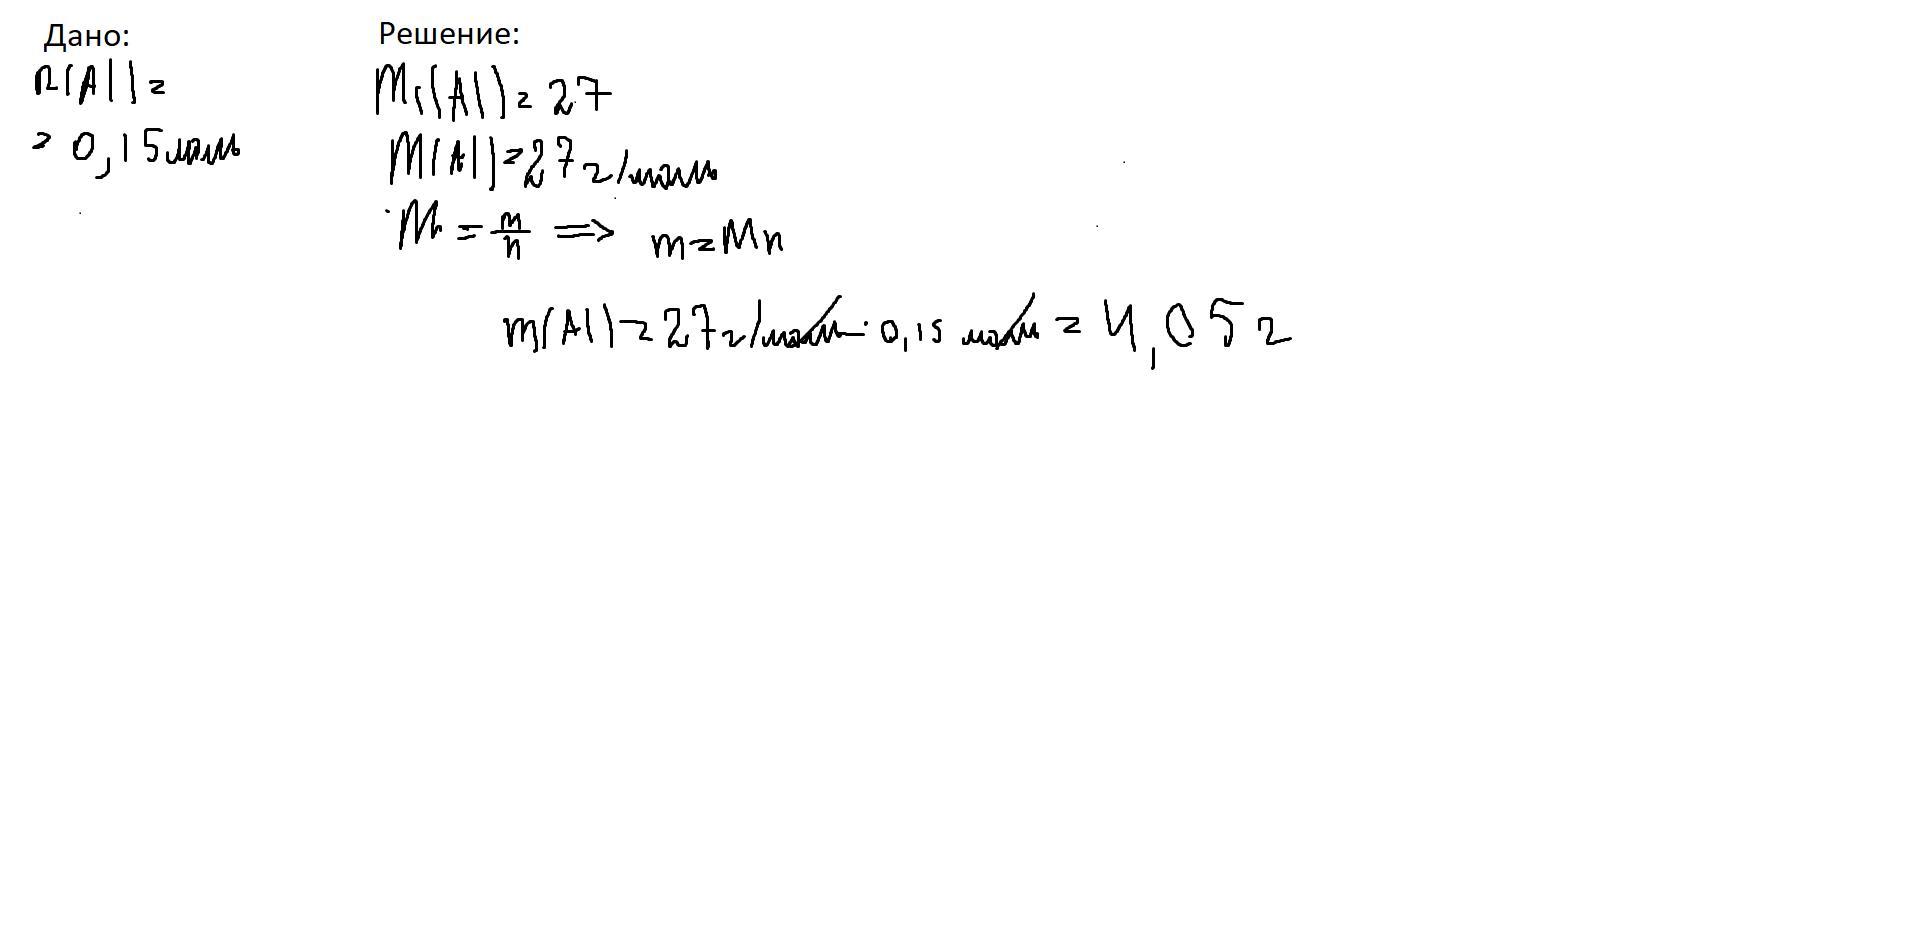 Дано:
n(Al) =
= 0,15 моль
Решение:
Mr(Al) = 27
M(Al) = 27 г/моль
M = m/n => m = Mn
m(Al) = 27 г/моль · 0,15 моль = 4,05 г